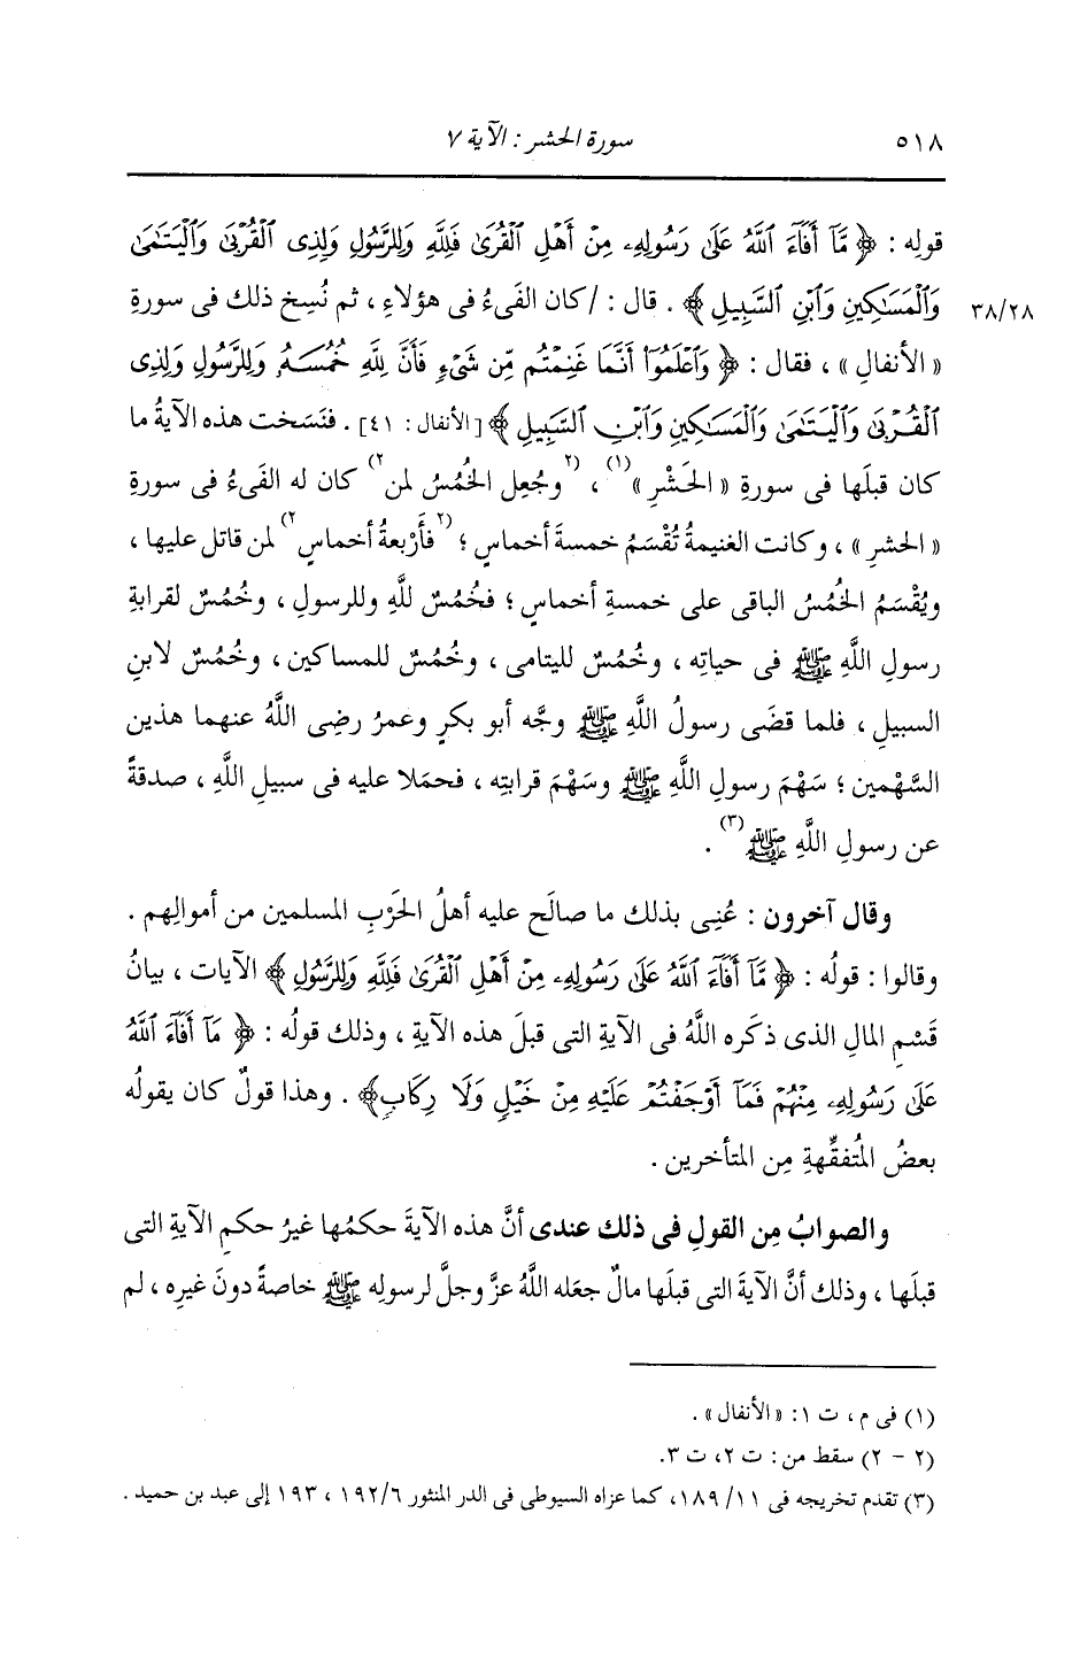 ٥١٨ سورة الحشر : الآية ٧
قولِه : ﴿ مَّآ أَفَآءَ ٱللَّهُ عَلَىٰ رَسُولِهِۦ مِنْ أَهْلِ ٱلْقُرَىٰ فَلِلَّهِ وَلِلرَّسُولِ وَلِذِى ٱلْقُرْبَىٰ وَٱلْيَتَٰمَىٰ
٣٨/٢٨ وَٱلْمَسَٰكِينِ وَٱبْنِ ٱلسَّبِيلِ ﴾ . قال : /كان الفَىءُ فى هؤلاءِ ، ثم نُسِخ ذلك فى سورةِ
« الأنفالِ » ، فقال : ﴿ وَٱعْلَمُوٓا۟ أَنَّمَا غَنِمْتُم مِّن شَىْءٍ فَأَنَّ لِلَّهِ خُمُسَهُۥ وَلِلرَّسُولِ وَلِذِى
ٱلْقُرْبَىٰ وَٱلْيَتَٰمَىٰ وَٱلْمَسَٰكِينِ وَٱبْنِ ٱلسَّبِيلِ ﴾ [الأنفال : ٤١] . فنَسَخت هذه الآيةُ ما
كان قبلَها فى سورةِ « الحَشْرِ »(١) ، (٢ وجُعِل الخُمُسُ لمن ٢) كان له الفَىءُ فى سورةِ
« الحشرِ » ، وكانت الغنيمةُ تُقْسَمُ خمسةَ أخماسٍ ؛ (٢ فأَرْبعةُ أخماسٍ ٢) لمن قاتل عليها ،
ويُقْسَمُ الخُمُسُ الباقى على خمسةِ أخماسٍ ؛ فخُمُسٌ للَّهِ وللرسولِ ، وخُمُسٌ لقرابةِ
رسولِ اللَّهِ ﷺ فى حياتِه ، وخُمُسٌ لليتامى ، وخُمُسٌ للمساكين ، وخُمُسٌ لابنِ
السبيلِ ، فلما قضَى رسولُ اللَّهِ ﷺ وجَّه أبو بكرٍ وعمرُ رضِى اللَّهُ عنهما هذين
السَّهْمين ؛ سَهْمَ رسولِ اللَّهِ ﷺ وسَهْمَ قرابتِه ، فحمَلا عليه فى سبيلِ اللَّهِ ، صدقةً
عن رسولِ اللَّهِ ﷺ(٣) .
وقال آخرون : عُنِى بذلك ما صالَح عليه أهلُ الحَرْبِ المسلمين من أموالِهم .
وقالوا : قولُه : ﴿ مَّآ أَفَآءَ ٱللَّهُ عَلَىٰ رَسُولِهِۦ مِنْ أَهْلِ ٱلْقُرَىٰ فَلِلَّهِ وَلِلرَّسُولِ ﴾ الآيات ، بيانُ
قَسْمِ المالِ الذى ذكَره اللَّهُ فى الآيةِ التى قبلَ هذه الآيةِ ، وذلك قولُه : ﴿ مَآ أَفَآءَ ٱللَّهُ
عَلَىٰ رَسُولِهِۦ مِنْهُمْ فَمَآ أَوْجَفْتُمْ عَلَيْهِ مِنْ خَيْلٍ وَلَا رِكَابٍ﴾ . وهذا قولٌ كان يقولُه
بعضُ المُتفقِّهةِ مِن المتأخرين .
والصوابُ مِن القولِ فى ذلك عندى أنَّ هذه الآيةَ حكمُها غيرُ حكمِ الآيةِ التى
قبلَها ، وذلك أنَّ الآيةَ التى قبلَها مالٌ جعَله اللَّهُ عزَّ وجلَّ لرسولِه ﷺ خاصةً دونَ غيرِه ، لم
(١) فى م ، ت ١: «الأنفال» .
(٢ - ٢) سقط من : ت ٢، ت ٣.
(٣) تقدم تخريجه فى ١١/ ١٨٩، كما عزاه السيوطى فى الدر المنثور ٦/ ١٩٢ ، ١٩٣ إلى عبد بن حميد .